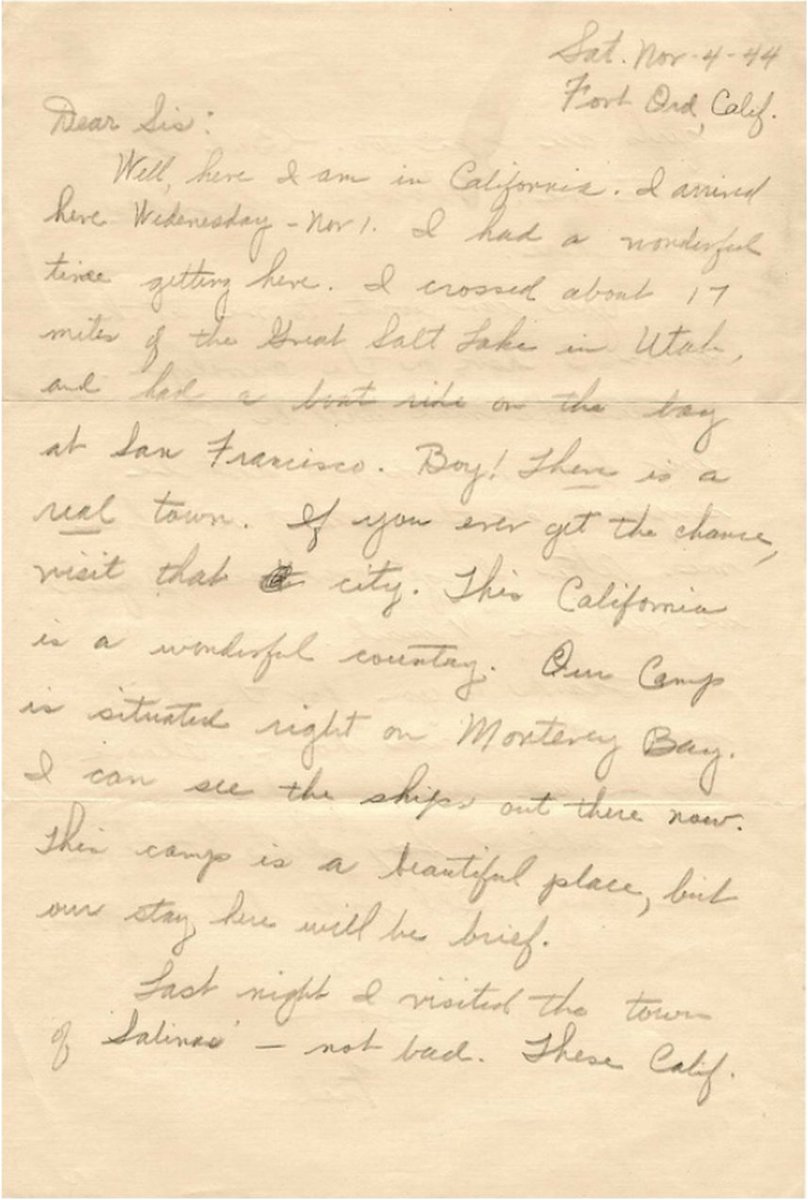 Sat. Nov-4-44
Fort Ord, Calif.
Dear Sis:
Well, here I am in California. I arrived
here Wednesday - Nov 1. I had a wonderful
time getting here. I crossed about 17
miles of the Great Salt Lake in Utah,
and had a boat ride on the bay
at San Francisco. Boy! There is a
real town. If you ever get the chance,
visit that city. This California
is a wonderful country. Our Camp
is situated right on Monterey Bay.
I can see the ships out there now.
This camp is a beautiful place, but
our stay here will be brief.
Last night I visited the town
of 'Salinas' - not bad. These Calif.